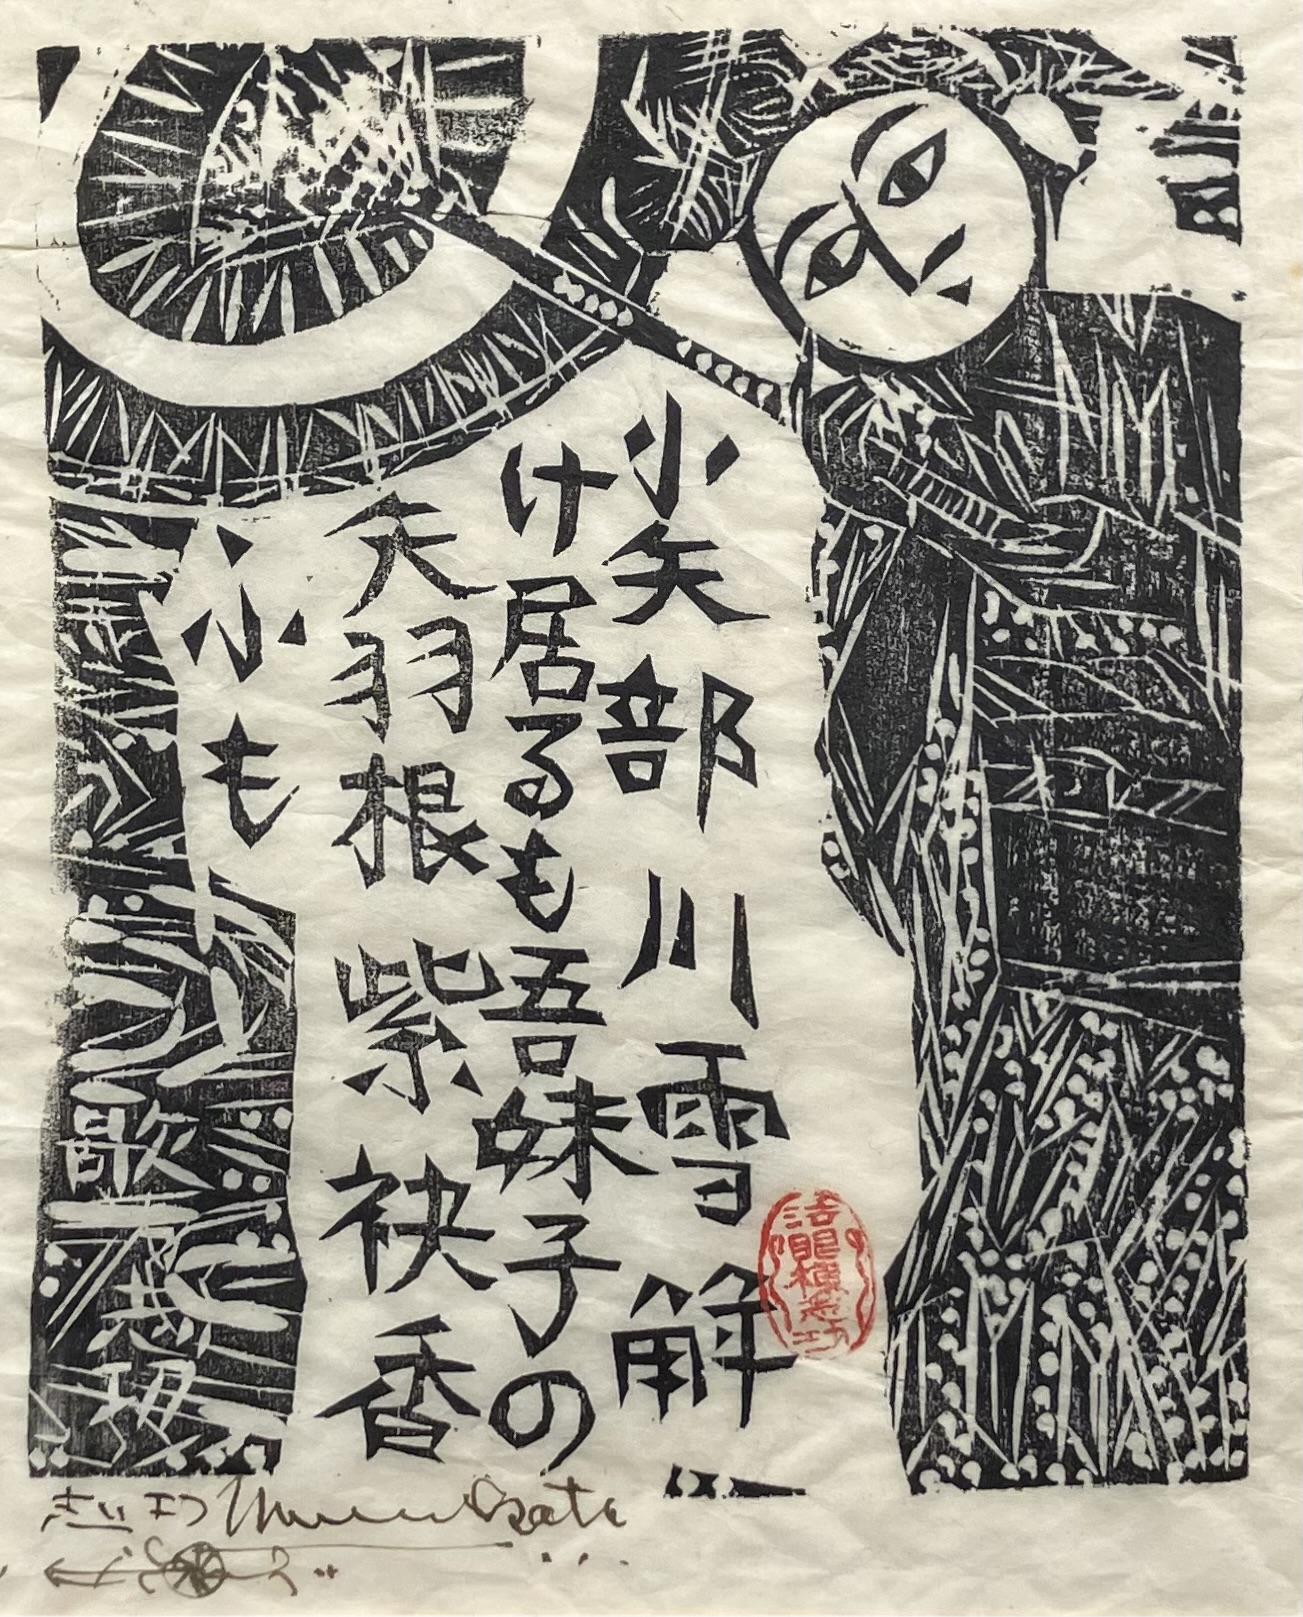 小矢部川雪解
け居るも吾妹子の
矢羽根紫袂香
ふも
歌
志功 Munakata